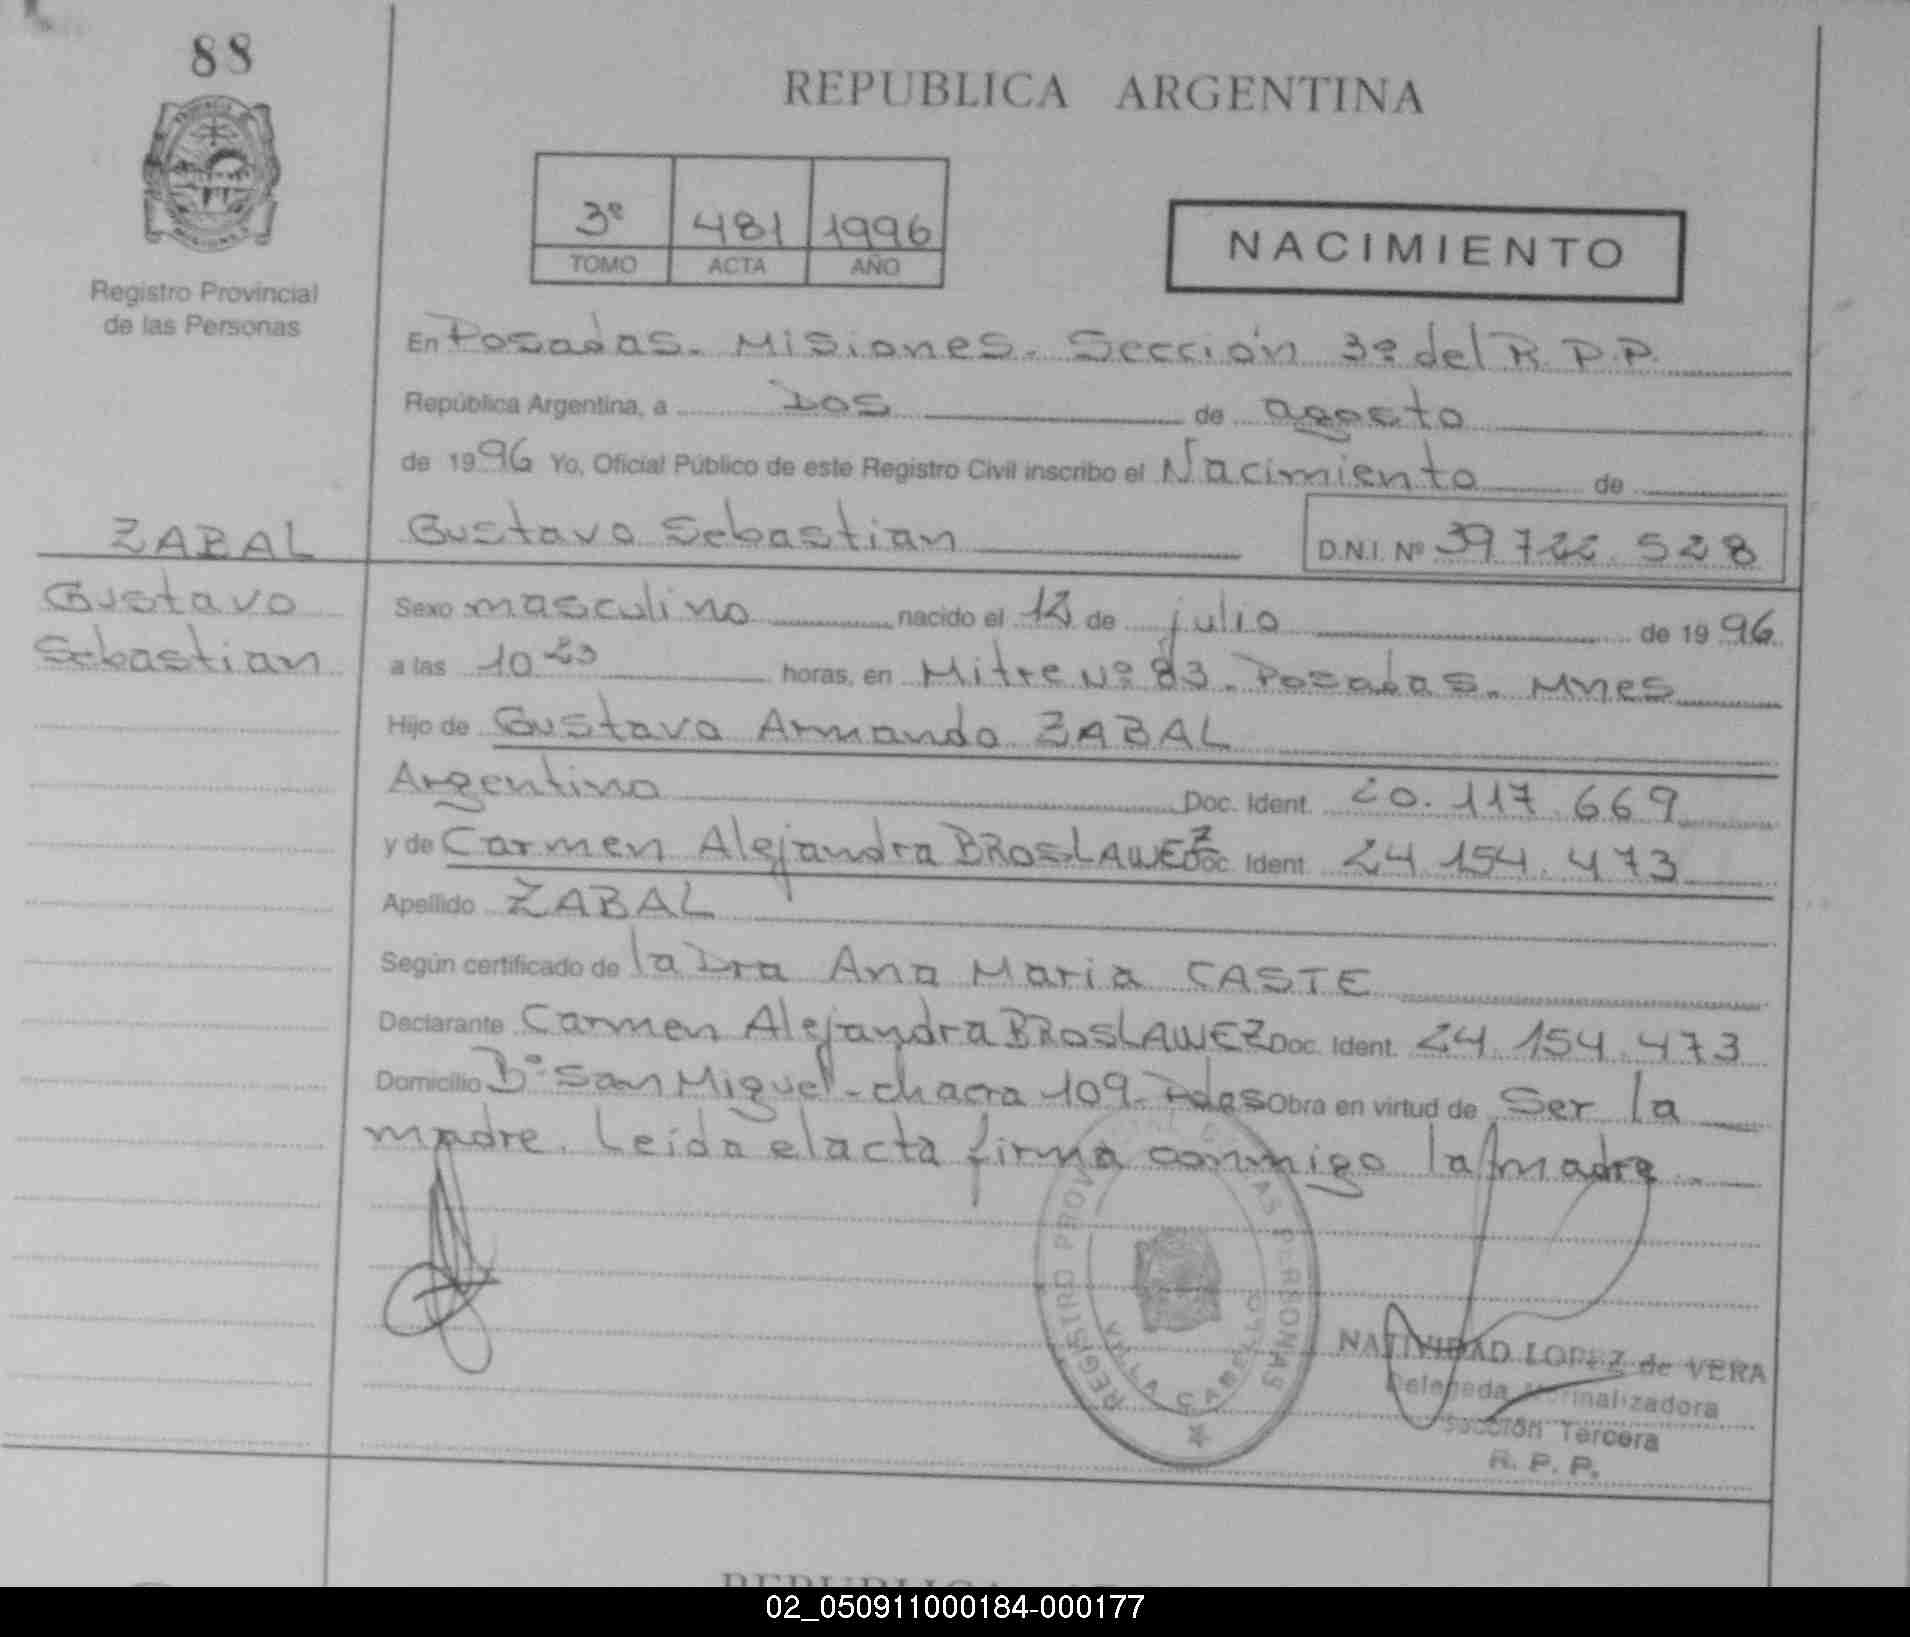 88
REPUBLICA ARGENTINA
3º 481 1996
TOMO ACTA AÑO
NACIMIENTO
Registro Provincial
de las Personas
En Posadas. Misiones. Sección 3º del R.P.P.
República Argentina, a Dos de agosto
de 1996 Yo, Oficial Público de este Registro Civil inscribo el Nacimiento de
ZABAL
Gustavo Sebastian
Gustavo Sebastian D.N.I. Nº 39.722.528
Sexo masculino nacido el 12 de julio de 1996
a las 10 23 horas, en Mitre Nº 83. Posadas. Mnes
Hijo de Gustavo Armando ZABAL
Argentino Doc. Ident. 20.117.669
y de Carmen Alejandra BROSLAWEZ Doc. Ident. 24.154.473
Apellido ZABAL
Según certificado de la Dra Ana Maria CASTE
Declarante Carmen Alejandra BROSLAWEZ Doc. Ident. 24.154.473
Domicilio Bº San Miguel - chacra 109 - Pdas Obra en virtud de Ser la
madre. Leida el acta firma conmigo la madre
REGISTRO PROVINCIAL DE LAS PERSONAS
VILLA CABELLO
NATIVIDAD LOPEZ de VERA
Delegada Normalizadora
Sección Tercera
R. P. P.
02_050911000184-000177